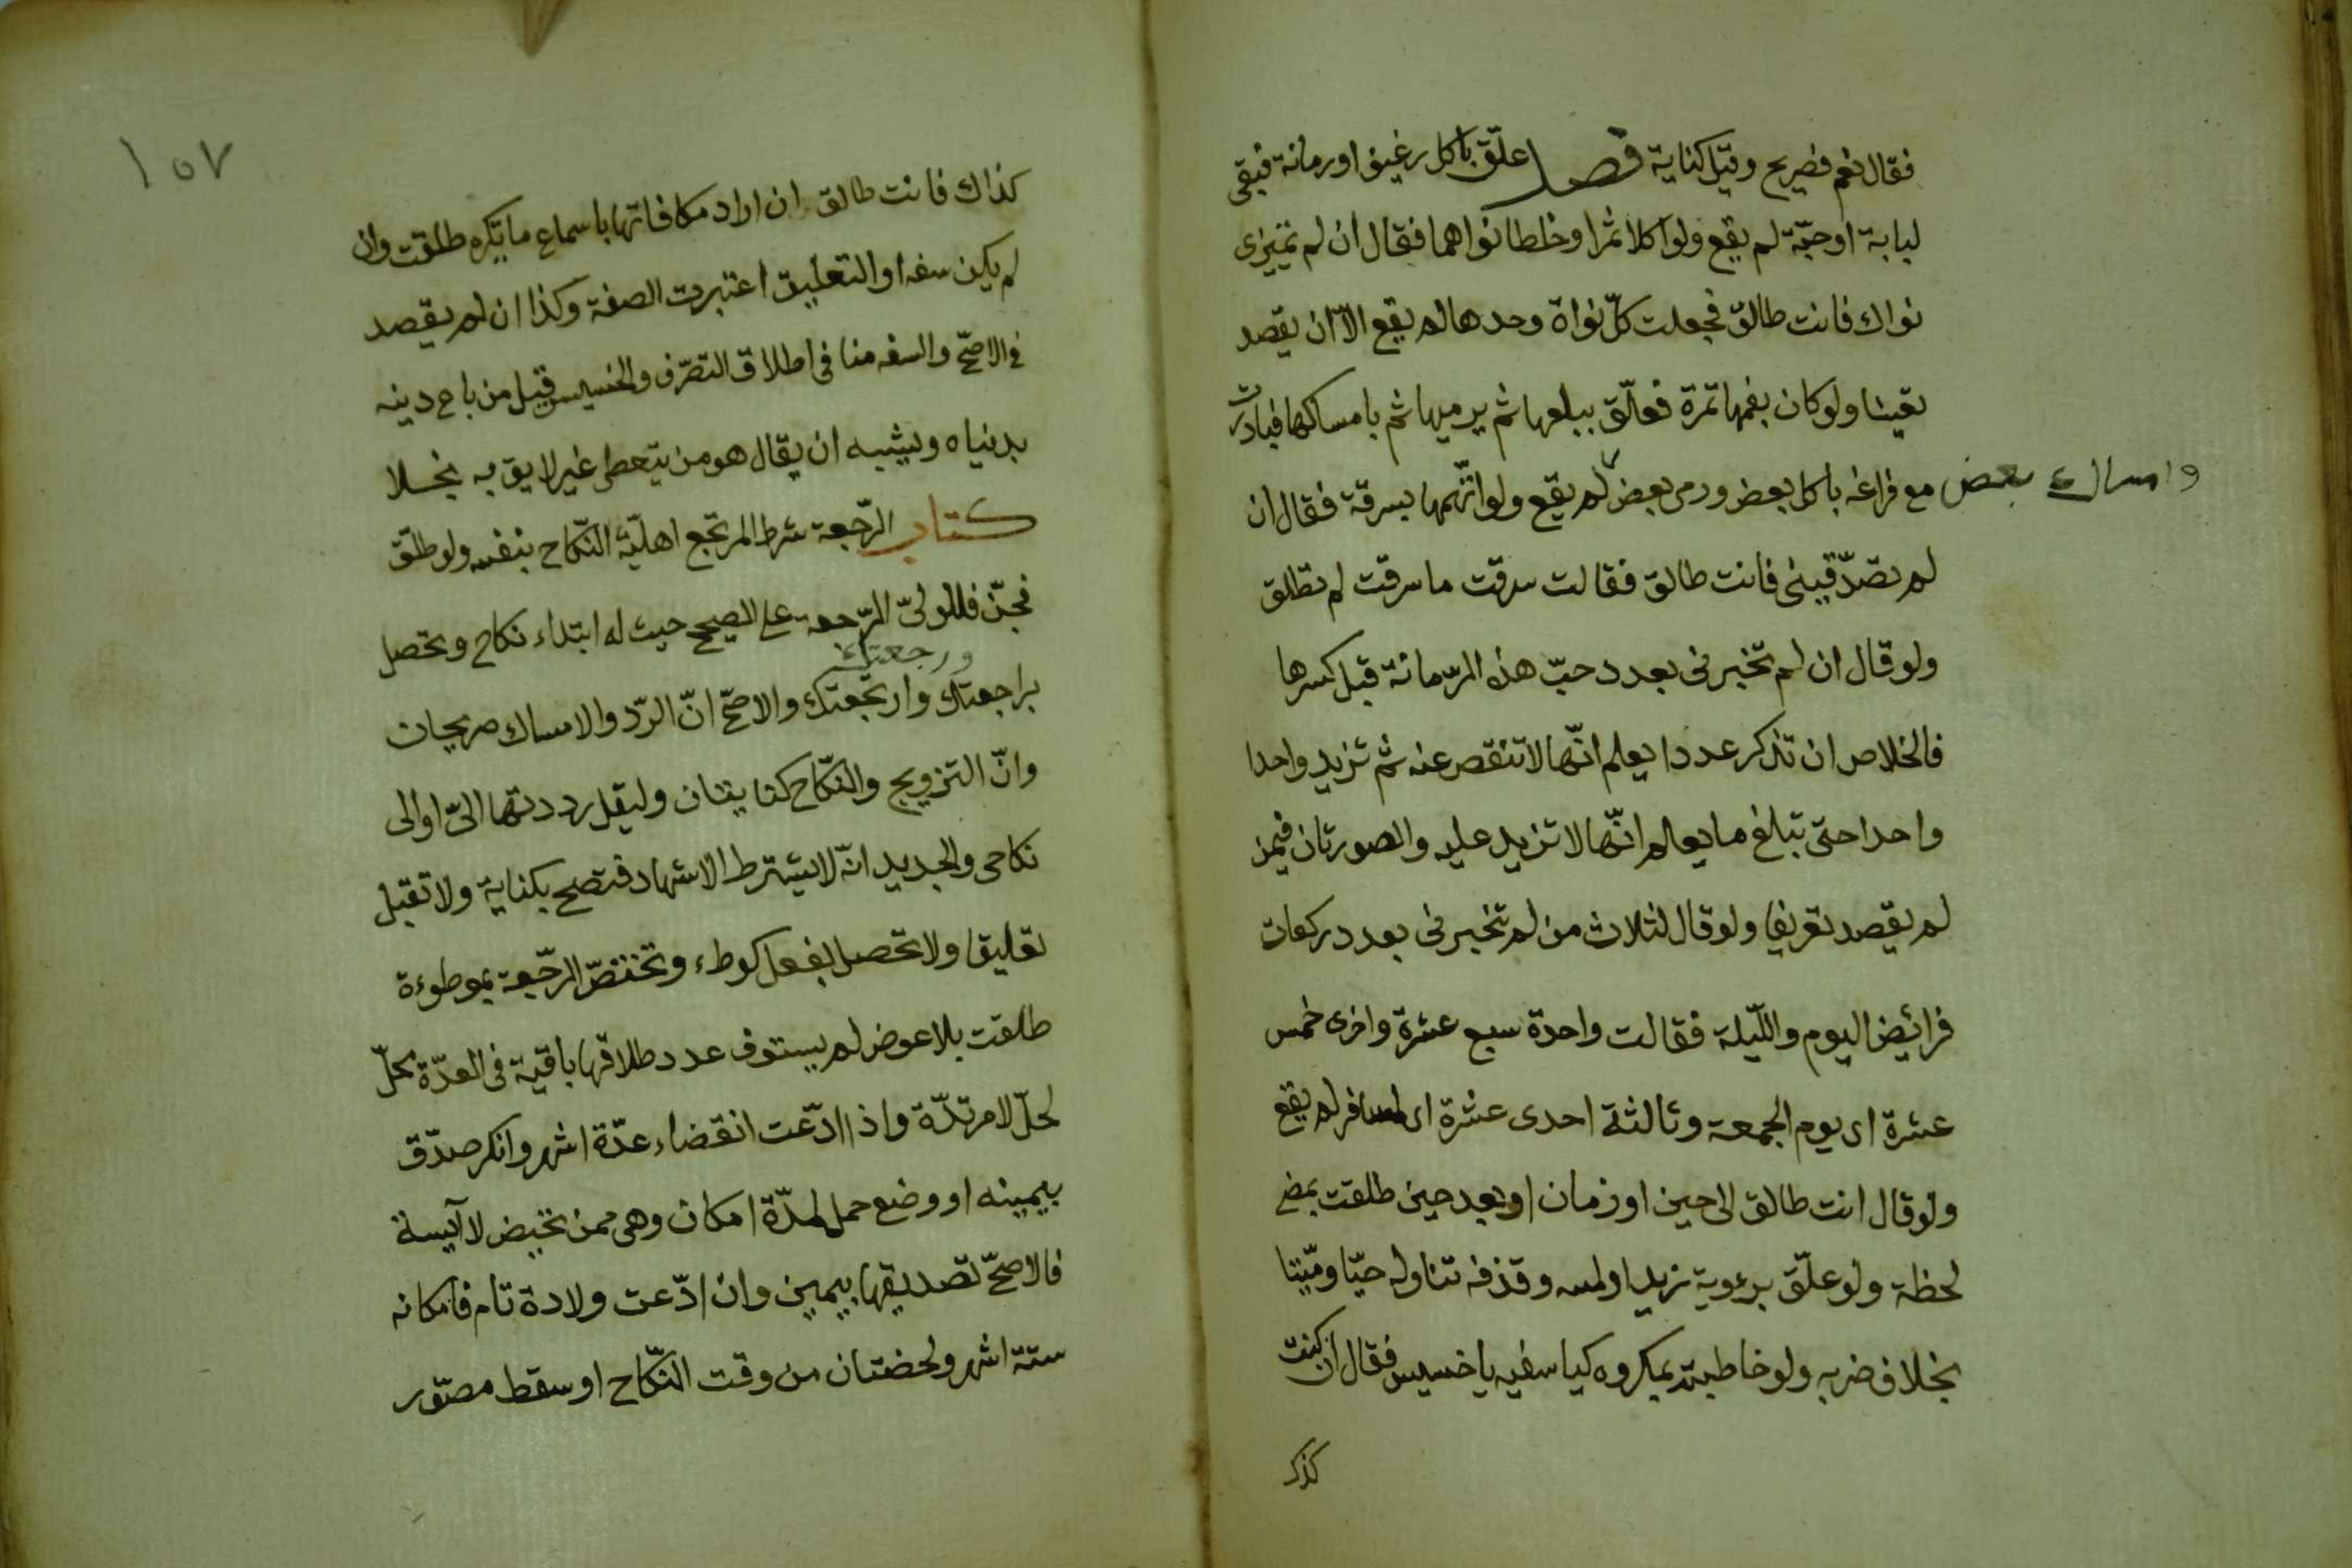 فقال نعم فصريح وقيل كناية فصل علّق باكل رغيف او رمانة فبقى
لبابة او حبّة لم يقع ولو اكلا تمرا وخلطا نواهما فقال ان لم تميزى
نواك فانت طالق فجعلت كلّ نواة وحدها لم يقع الاّ ان يقصد
تعينا ولو كان بفمها تمرة فعلّق ببلعها ثم برميها ثم بامساكها فبادرت
مع فراغه باكل بعض ورمى بعض لم يقع ولو اتّهمها بسرقة فقال ان
وامساك بعض
لم تصدّقينى فانت طالق فقالت سرقت ما سرقت لم تطلق
ولو قال ان لم تخبرنى بعدد حبّ هذه الرّمانة قبل كسرها
فالخلاص ان تذكر عددا يعلم انّها لا تنقص عنه ثم تزيد واحدا
واحدا حتى تبلغ ما يعلم انّها لا تزيد عليه والصورتان فيمن
لم يقصد تعريفا ولو قال لثلاث من لم تخبرنى بعدد ركعات
فرائض اليوم واللّيلة فقالت واحدة سبع عشرة واخرى خمس
عشرة اى يوم الجمعة وثالثة احدى عشرة اى لمسافر لم يقع
ولو قال انت طالق الى حين او زمان او بعد حين طلقت بمضى
لحظة ولو علّق برءوية زيد او لمسه وقذفه تناوله حيّا وميّتا
بخلاف ضربه ولو خاطبته بمكروه كيا سفيه يا خسيس فقال ان كنت
كذك
١٥٧
كذاك فانت طالق ان اراد مكافاتها باسماع ما تكره طلقت وان
لم يكن سفه او التعليق اعتبرت الصفة وكذا ان لم يقصد
فى الاصحّ والسفه منافى اطلاق التصرّف والخسيس قيل من باع دينه
بدنياه ويشبه ان يقال هو من يتعطى غير لايق به بخلا
كتاب الرّجعة شرط المرتجع اهليّة النّكاح بنفسه ولو طلّق
فجنّ فللولىّ الرّجعة على الصحيح حيث له ابتداء نكاح وتحصل
ورجعتك
براجعتك وارتجعتك والاصحّ انّ الرّد والامساك صريحان
وانّ التزويج والنّكاح كنايتان وليقل رددتها الىّ او الى
نكاحى والجديد انّه لا يشترط الاشهاد فتصح بكناية ولا تقبل
تعليقا ولا تحصل بفعل كوطء وتختصّ الرّجعة بموطوءة
طلقت بلا عوض لم يستوف عدد طلاقها باقية فى العدّة محلّ
لحلّ لا مرتدّة واذا ادّعت انقضاء عدّة اشهر وانكر صدّق
بيمينه او وضع حمل لمدّة امكان وهى ممن تحيض لا آيسة
فالاصحّ تصديقها بيمين وان ادّعت ولادة تام فامكانه
ستة اشهر ولحضتان من وقت النّكاح او سقط مصوّر